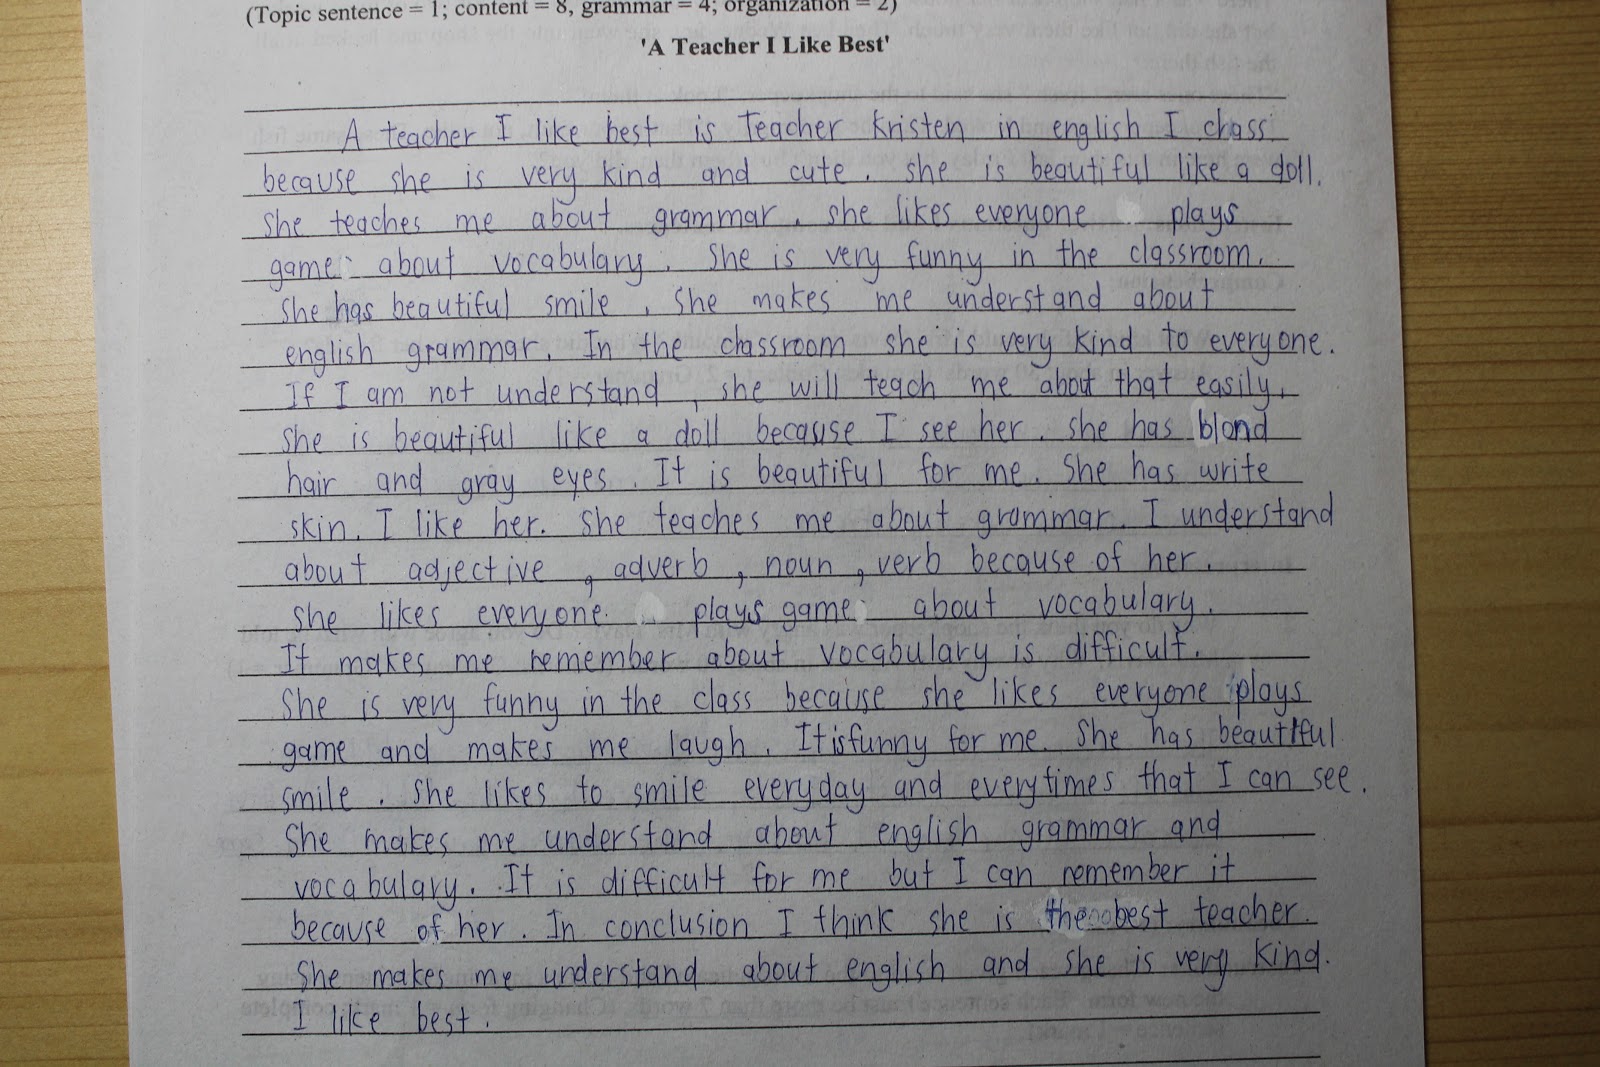 (Topic sentence = 1; content = 8, grammar = 4; organization = 2)
'A Teacher I Like Best'
A teacher I like best is Teacher Kristen in english I class
because she is very kind and cute. she is beautiful like a doll.
She teaches me about grammar. she likes everyone plays
game about vocabulary. She is very funny in the classroom.
She has beautiful smile. She makes me understand about
english grammar. In the classroom she is very kind to everyone.
If I am not understand, she will teach me about that easily.
She is beautiful like a doll because I see her. she has blond
hair and gray eyes. It is beautiful for me. She has write
skin. I like her. She teaches me about grammar. I understand
about adjective, adverb, noun, verb because of her.
She likes everyone plays game about vocabulary.
It makes me remember about vocabulary is difficult.
She is very funny in the class because she likes everyone plays
game and makes me laugh. It is funny for me. She has beautiful
smile. She likes to smile everyday and everytimes that I can see.
She makes me understand about english grammar and
vocabulary. It is difficult for me but I can remember it
because of her. In conclusion I think she is the best teacher.
She makes me understand about english and she is very kind.
I like best.